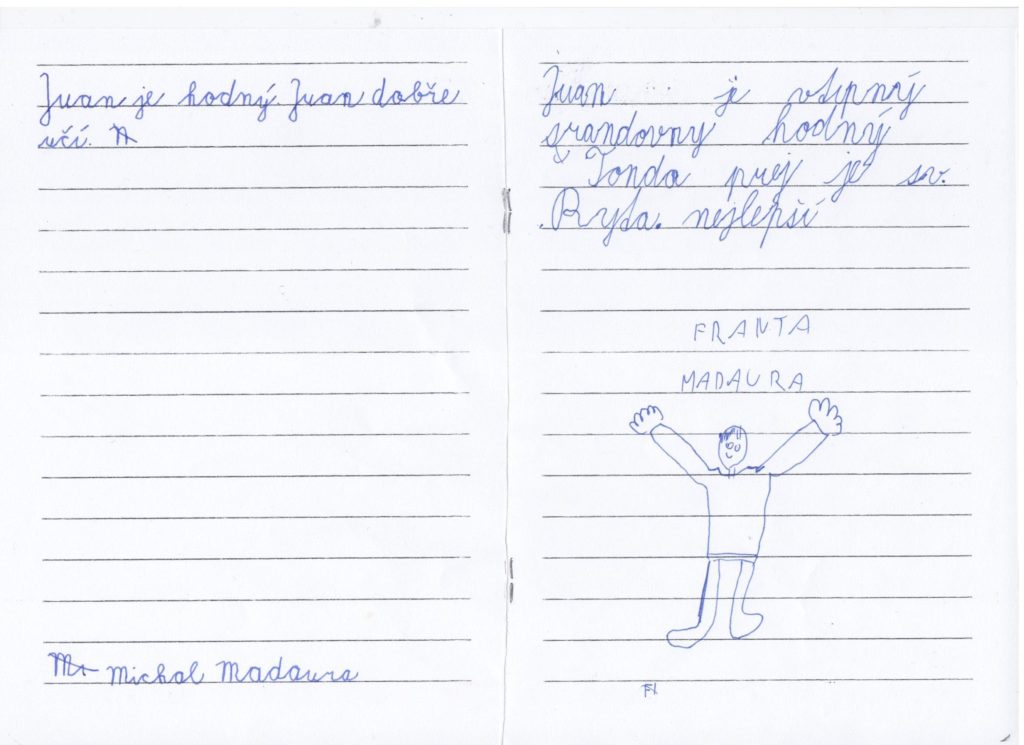 Juan je hodný. Juan dobře
učí.
Michal Madaura
Juan je vtipný
srandovny hodný
Tonda prej je sv.
Ryta. nejlepší
FRANTA
MADAURA